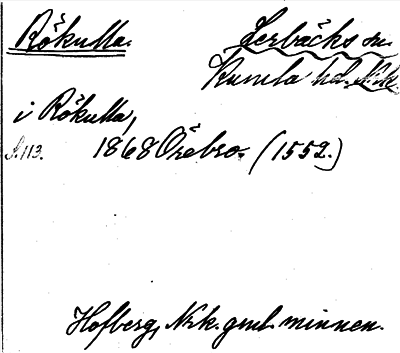 Rökulla.
Lerbäcks sn.
Kumla hd. Nrk.
i Rökulla,
S. 113. 1868 Örebro. (1552.)
Hofberg, Nrk. gml. minnen.